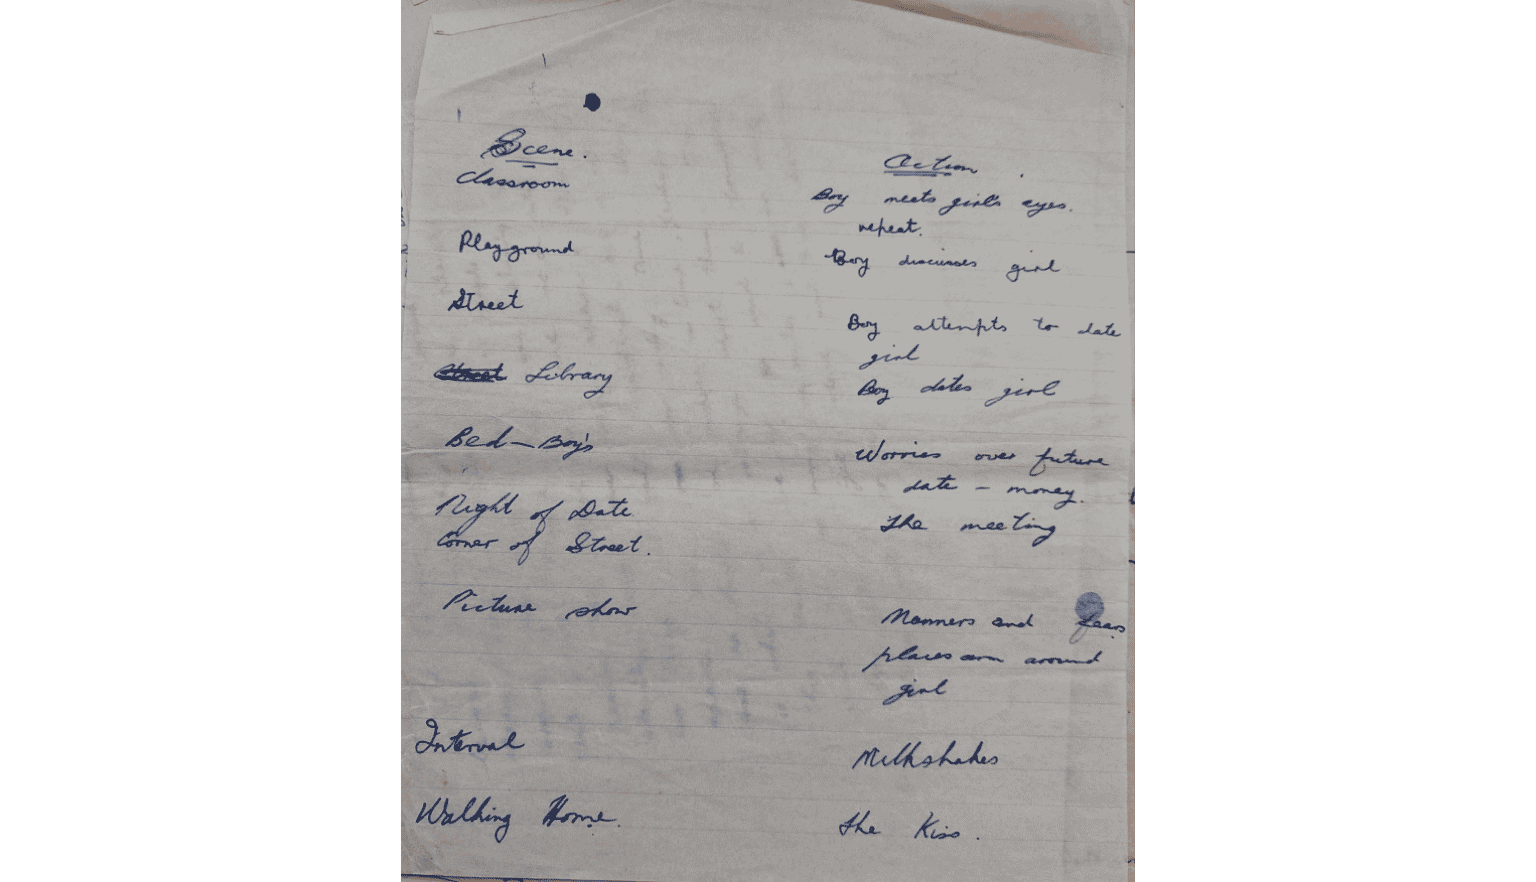 Scene.
Action.
Classroom
Boy meets girl's eyes.
repeat.
Playground
Boy discusses girl
Street
Boy attempts to date
girl
Library
Boy dates girl
Bed - Boy's
Worries over future
date - money.
Night of Date
The meeting
Corner of Street.
Picture show
Manners and fears
places arm around
girl
Interval
Milkshakes
Walking Home.
The Kiss.